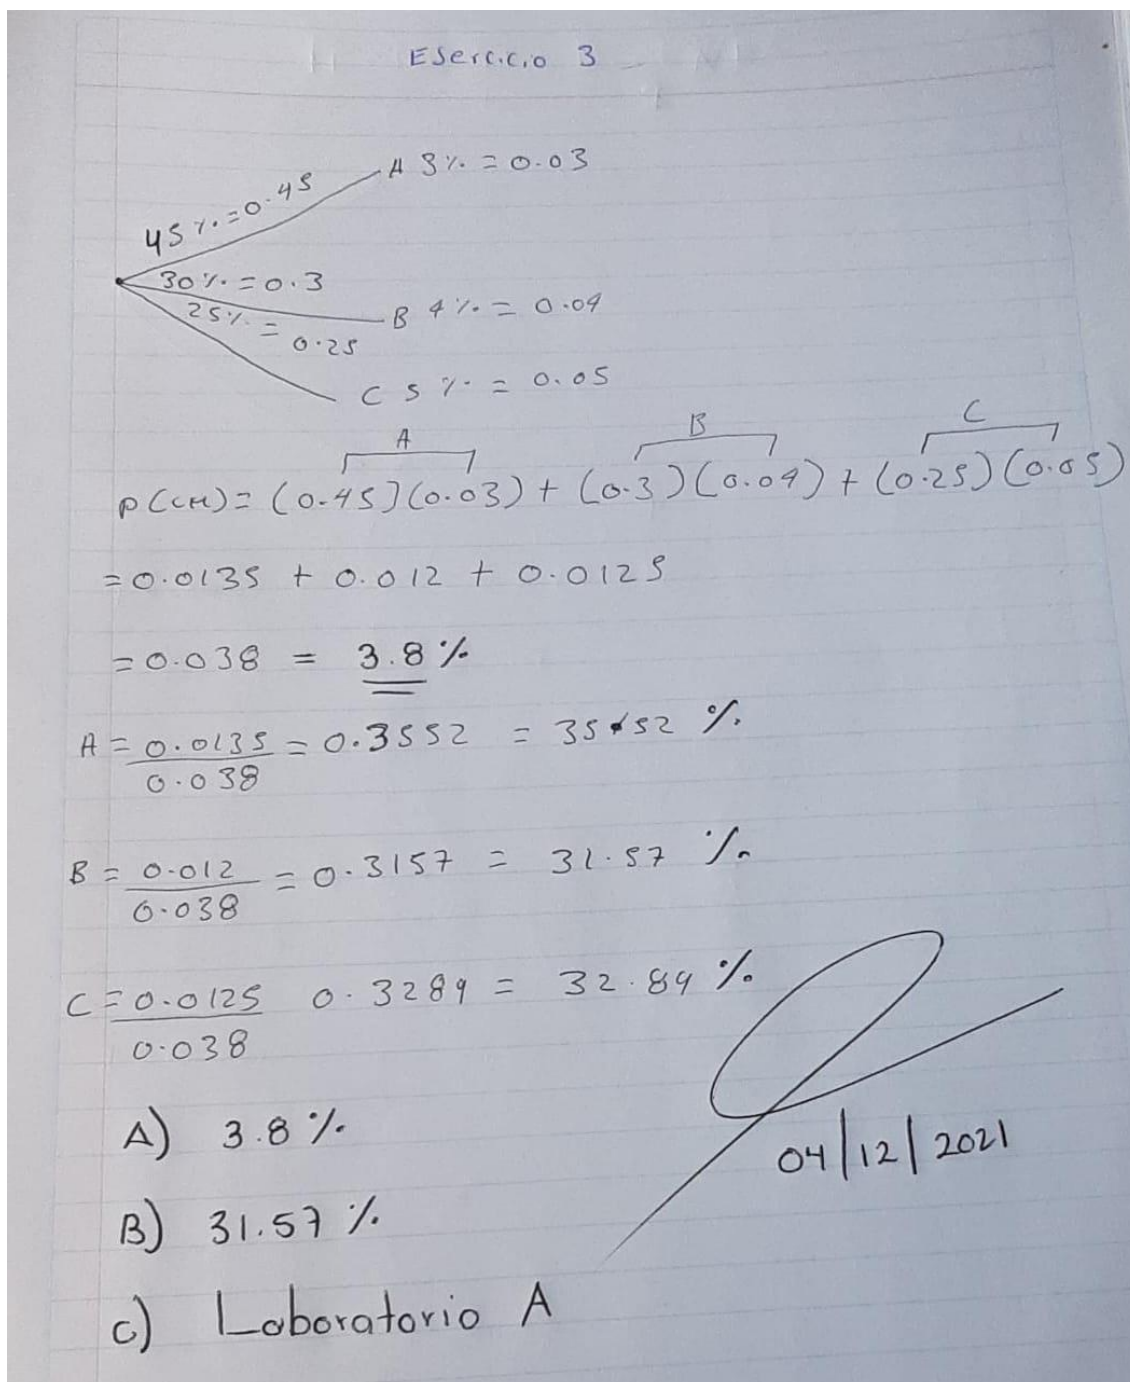 Ejercicio 3
45%=0.45
A 3% = 0.03
30% = 0.3
25% = 0.25
B 4% = 0.04
C 5% = 0.05
A B C
P(CM)= (0.45)(0.03) + (0.3)(0.04) + (0.25)(0.05)
=0.0135 + 0.012 + 0.0125
=0.038 = 3.8%
A = 0.0135/0.038 = 0.3552 = 35.52 %
B = 0.012/0.038 = 0.3157 = 31.57 %
C = 0.0125/0.038 0.3289 = 32.89 %
A) 3.8%
04/12/2021
B) 31.57 %
C) Laboratorio A